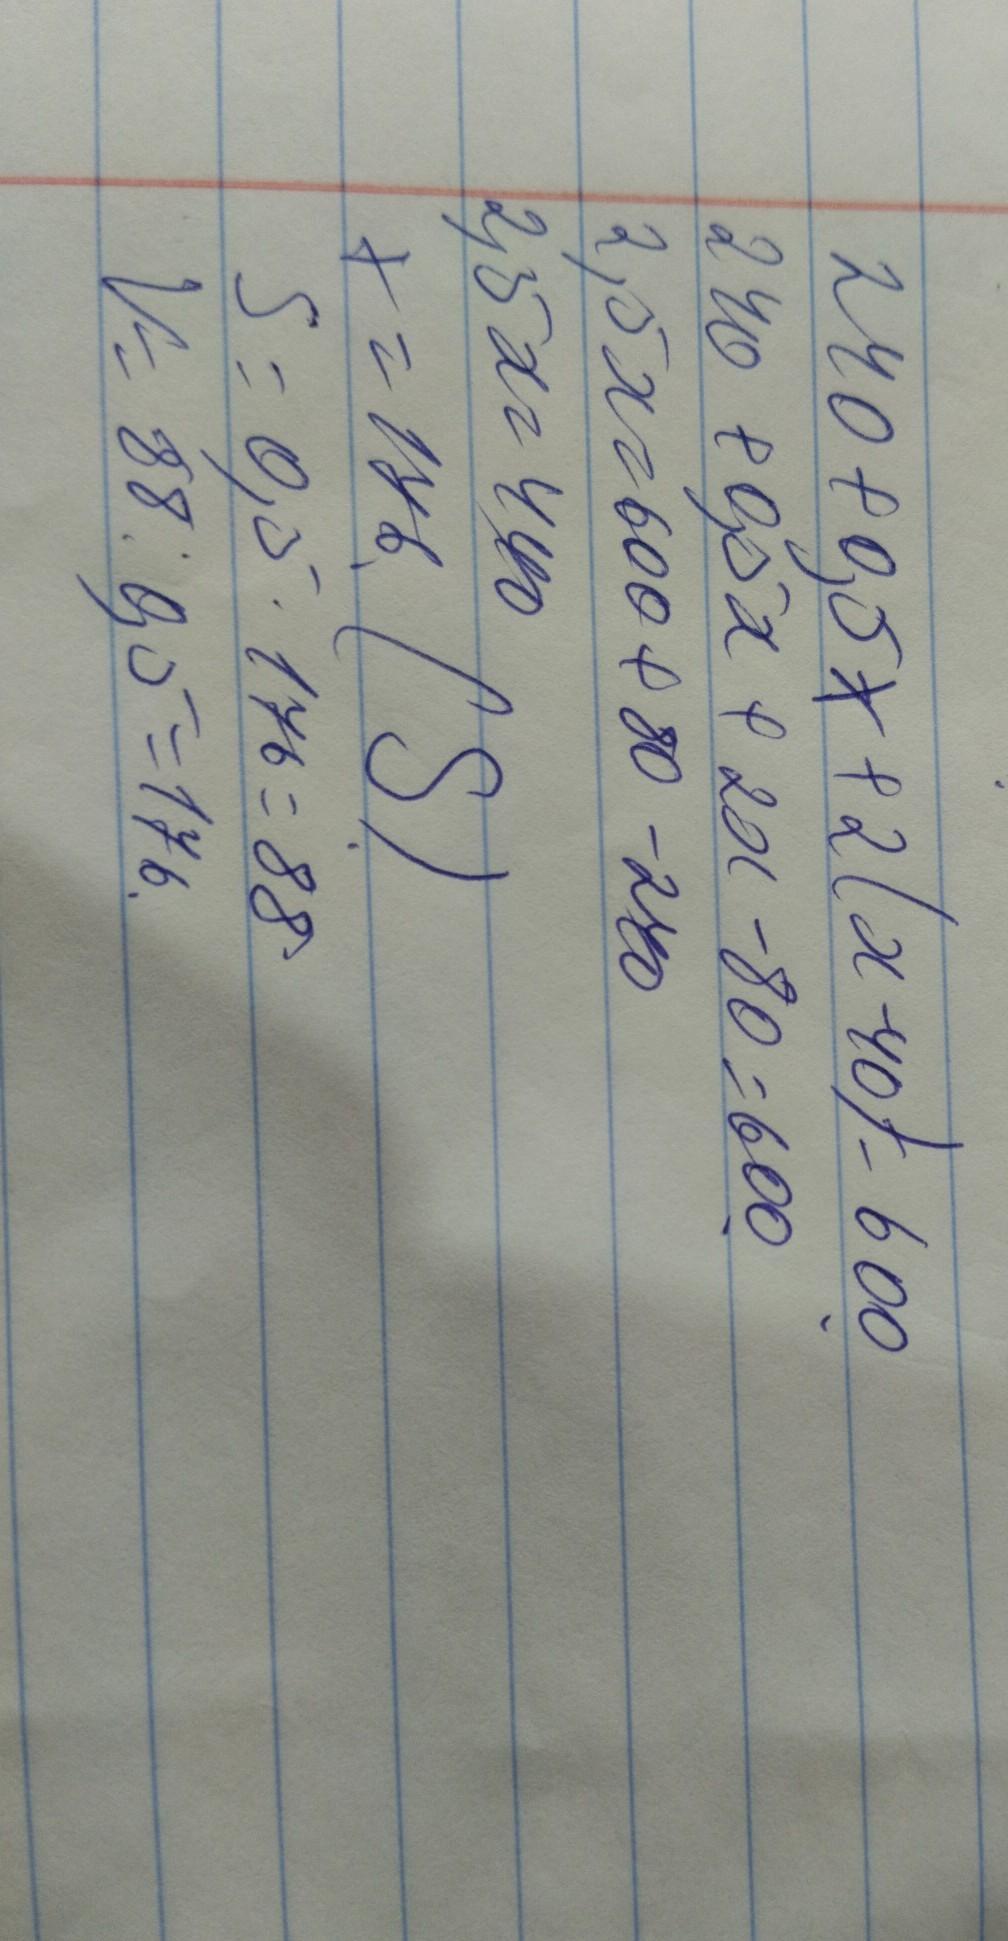 240+0,5x+2(x-40)=600
240+0,5x+2x-80=600
2,5x=600+80-240
2,5x=440
x=176 (S)
S=0,5·176=88
V=88:0,5=176.